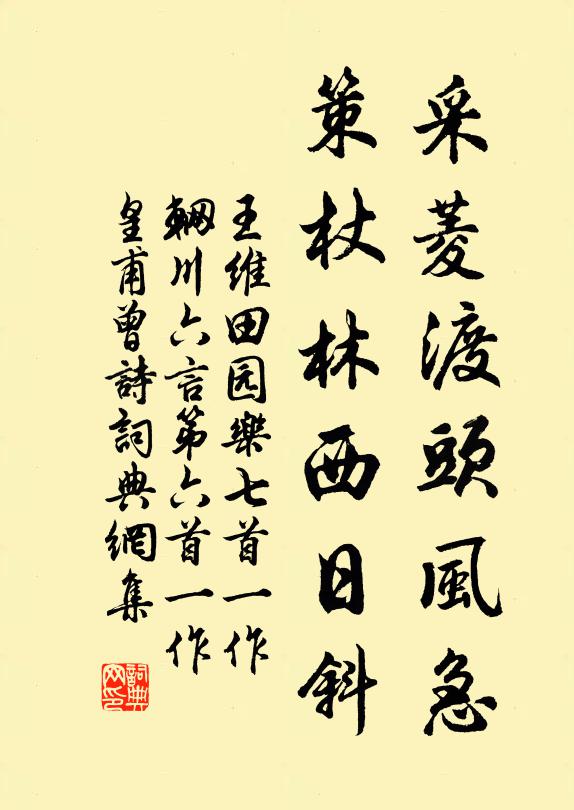 采菱渡頭風急
策杖林西日斜
王維田园樂七首一作
輞川六言第六首一作
皇甫曾詩詞典網集
詞典网印